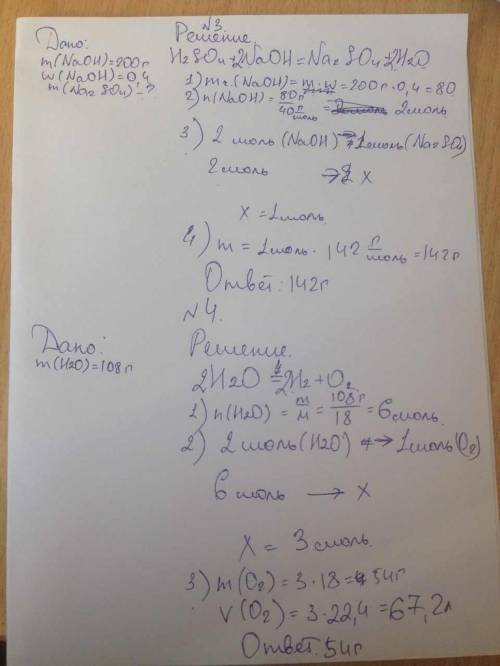 N3
Дано:
m(NaOH)=200г
w(NaOH)=0,4
m(Na2SO4)-?
Решение.
H2SO4+2NaOH=Na2SO4+2H2O
1) m р.в.(NaOH)=m·w=200г·0,4=80
2) n(NaOH)=80г/40г/моль=2моль
3) 2 моль(NaOH)→1моль(Na2SO4)
2моль → X
X=1моль
4) m=1моль·142 г/моль=142г
Ответ:142г
N4.
Дано:
m(H2O)=108г
Решение.
2H2O=2H2+O2
1) n(H2O)=m/M=108г/18=6моль.
2) 2моль(H2O)→1моль(O2)
6моль → X
X=3моль.
3) m(O2)=3·18=54г
V(O2)=3·22,4=67,2л
Ответ:54г